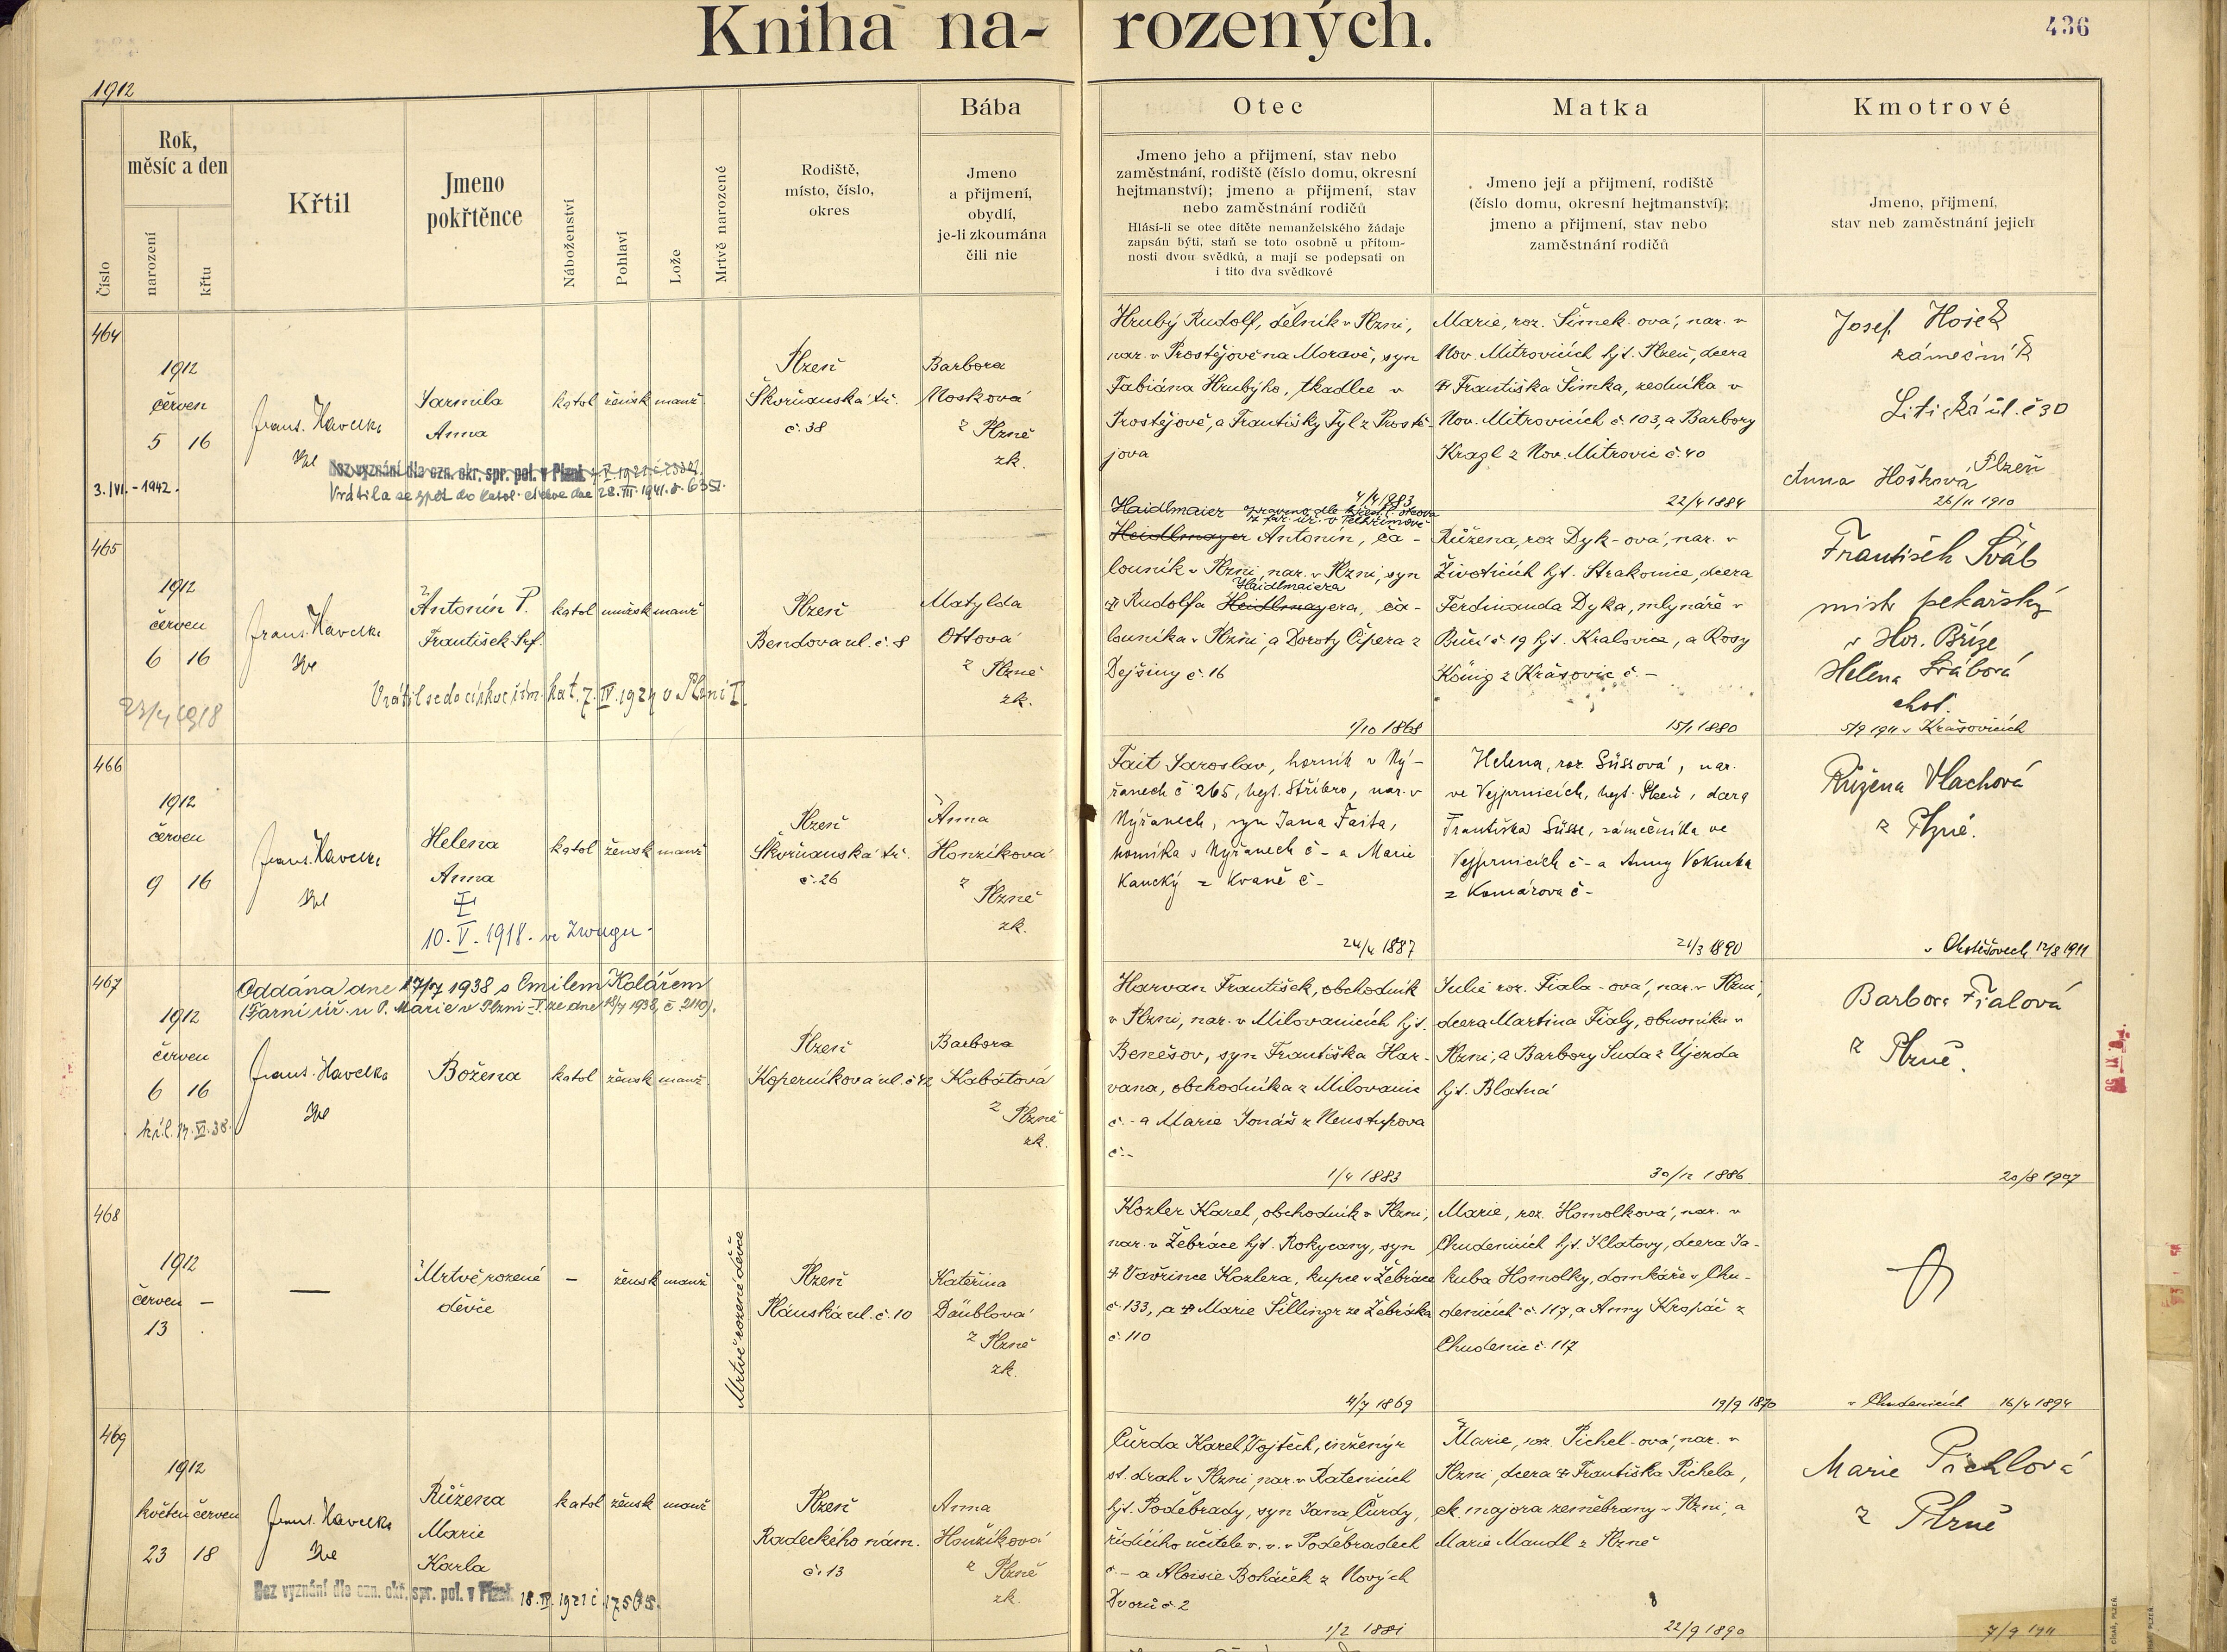 Kniha na-rozených.
436
1912
Číslo
Rok, měsíc a den
narození
křtu
Křtil
Jmeno pokřtěnce
Náboženství
Pohlaví
Lože
Mrtvě narozené
Rodiště,
místo, číslo,
okres
Bába
Jmeno
a přijmení,
obydlí,
je-li zkoumána
čili nic
Otec
Jmeno jeho a přijmení, stav nebo
zaměstnání, rodiště (číslo domu, okresní
hejtmanství); jmeno a přijmení, stav
nebo zaměstnání rodičů
Hlásí-li se otec dítěte nemanželského žádaje
zapsán býti, staň se toto osobně u přítom-
nosti dvou svědků, a mají se podepsati on
i tito dva svědkové
Matka
Jmeno její a přijmení, rodiště
(číslo domu, okresní hejtmanství);
jmeno a přijmení, stav nebo
zaměstnání rodičů
Kmotrové
Jmeno, přijmení,
stav neb zaměstnání jejich
464
1912
červen
5 16
3./VI.-1942.
Frant. Havelka
Jarmila
Anna
katol žensk manž
Plzeň
Škvrňanská tř.
č. 38
Barbora
Nosková
z Plzně
zk.
Bez vyznání dle ozn. okr. spr. pol. v Plzni
Vrátila se zpět do katol. církve dne 28.III.1941.
Hrubý Rudolf, dělník v Plzni,
nar. v Prostějově na Moravě, syn
Fabiána Hrubýho, tkadlce v
Prostějově, a Františky Tyl z Prostě-
jova
4/4 1883
Marie, roz. Šimek-ová, nar. v
Nov. Mitrovicích hjt. Plzeň, dcera
Františka Šimka, zedníka v
Nov. Mitrovicích č. 103, a Barbory
Kragl z Nov. Mitrovic č. 40
22/4 1884
Josef Hošek
zámečník
Litická ul. č 30
Plzeň
Anna Hošková
26/11 1910
465
1912
červen
6 16
23/4 1918
Frant. Havelka
Antonín P.
František
katol mužsk manž
Vrátil se do církve řím. kat. 7.IV.1924 v Plzni I.
Plzeň
Bendova ul. č. 8
Matylda
Ottová
z Plzně
zk.
Haidlmaier
Heidlmayer Antonín, ča-
louník v Plzni, nar. v Plzni, syn
Haidlmaiera
Rudolfa Heidlmayera, ča-
louníka v Plzni, a Doroty Čipera z
Dejšiny č. 16
1/10 1868
Růžena, roz Dyk-ová, nar. v
Životicích hjt. Strakonice, dcera
Ferdinanda Dyka, mlynáře v
Bučí č 19 hjt. Kralovice, a Rosy
König z Krašovic č. -
15/1 1880
František Šváb
mistr pekařský
v Hor. Bříze
Helena Švábová
chot.
5/9 1911 v Krašovicích
466
1912
červen
9 16
Frant. Havelka
Helena
Anna
10. V. 1918.
katol žensk manž
Plzeň
Škvrňanská tř.
č. 26
Anna
Honzíková
z Plzně
zk.
Fait Jaroslav, horník v Ný-
řanech č 265, hejt. Stříbro, nar. v
Nýřanech, syn Jana Faita,
horníka v Nýřanech č - a Marie
Kaucký z Kvaně č -
24/4 1887
Helena, roz. Süssová, nar.
ve Vejprnicích, hejt. Plzeň, dcera
Františka Süsse, zámečníka ve
Vejprnicích č - a Anny
z Komárova č -
21/3 1890
Růžena Vlachová
z Plzně.
v Chotěšovech 12/8 1911
467
Oddána dne 17/7 1938 s Emilem Kolářem
(Farní úř. u P. Marie v Plzni-I. ze dne 18/7 1938, č 2110).
1912
červen
6 16
Frant. Havelka
Božena
katol žensk manž
Plzeň
Koperníkova ul. č 42
Barbora
Kabátová
z Plzně
zk.
Harvan František, obchodník
v Plzni, nar. v Milovanicích hjt.
Benešov, syn Františka Har-
vana, obchodníka z Milovanic
č. - a Marie Jonáš z Neustupova
č. -
1/4 1883
Julie roz. Fiala-ová, nar. v Plzni,
dcera Martina Fialy, obuvníka v
Plzni, a Barbory Suda z Újezda
hjt. Blatná
30/12 1886
Barbora Fialová
z Plzně.
20/8 1907
468
1912
červen -
13
Mrtvě rozené
děvče
- žensk manž
Mrtvě rozené děvče
Plzeň
Plánská ul. č. 10
Kateřina
Däublová
z Plzně
zk.
Kozler Karel, obchodník v Plzni,
nar. v Žebráce hjt. Rokycany, syn
Vavřince Kozlera, kupce v Žebráce
č. 133, a Marie Šillingr ze Žebráka
č. 110
4/7 1869
Marie, roz. Homolková, nar. v
Chudenicích hjt. Klatovy, dcera Ja-
kuba Homolky, domkáře v Chu-
denicích č. 117, a Anny Kropáč z
Chudenic č. 117
19/9 1870
v Chudenicích 16/4 1894
469
1912
květen červen
23 18
Frant. Havelka
Růžena
Marie
Karla
katol žensk manž
Bez vyznání dle ozn. okr. spr. pol. v Plzni 18.IV.1921 č. 17505.
Plzeň
Radeckého nám.
č. 13
Anna
Honzíková
z Plzně
zk.
Čurda Karel Vojtěch, inženýr
st. drah v Plzni, nar. v Ratenicích
hjt. Poděbrady, syn Jana Čurdy,
řídícího učitele v. v. v Poděbradech
č. - a Aloisie Boháček z Nových
Dvorů č. 2
1/2 1881
Marie, roz. Pichel-ová, nar. v
Plzni, dcera Františka Pichela,
ck. majora zeměbrany v Plzni, a
Marie Mandl z Plzně
22/9 1890
Marie Pichlová
z Plzně
7/9 1911